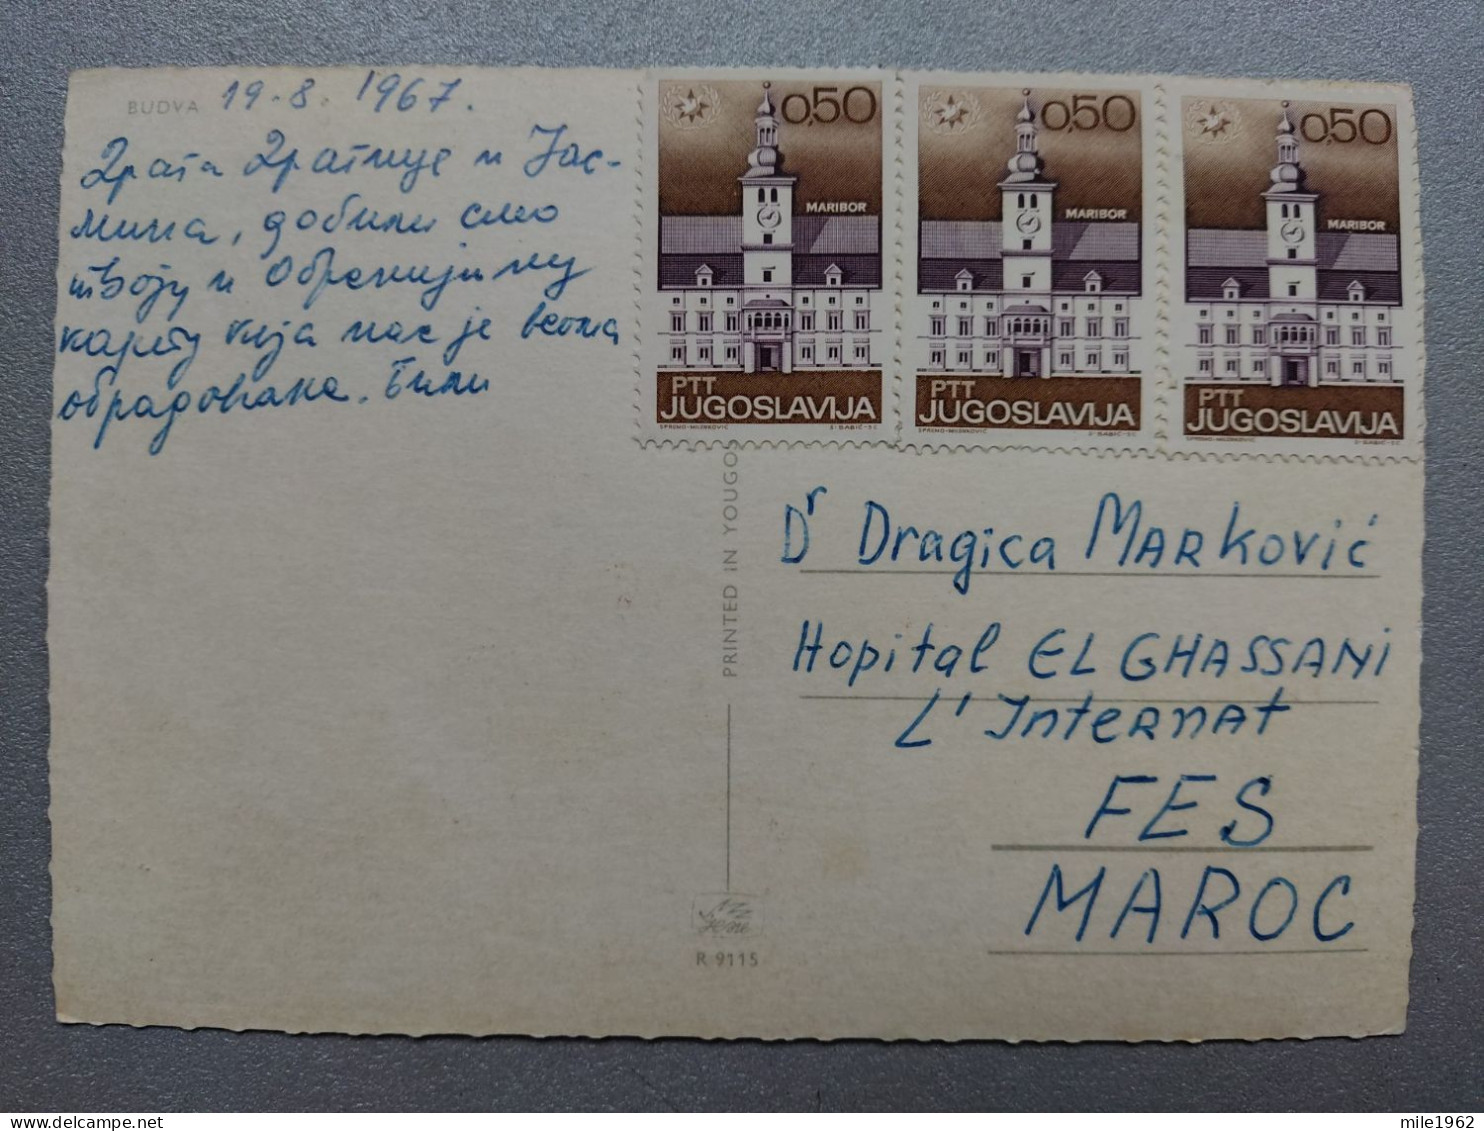 BUDVA 19.8.1967.
Драга Драгице и Јас-
мина, добили смо
твоју и Обренијину
карту која нас је веома
обрадовала. Били
0,50
MARIBOR
PTT
JUGOSLAVIJA
0,50
MARIBOR
PTT
JUGOSLAVIJA
0,50
MARIBOR
PTT
JUGOSLAVIJA
PRINTED IN YUGOS
Dr Dragica MARKOVIĆ
Hopital EL GHASSANI
L'INTERNAT
FES
MAROC
R 9115
mile1962